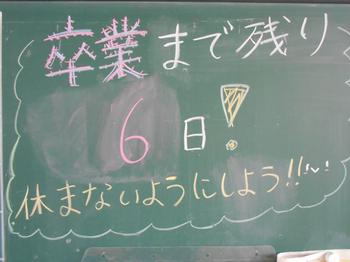 卒業まで残り
6日!
休まないようにしよう!!